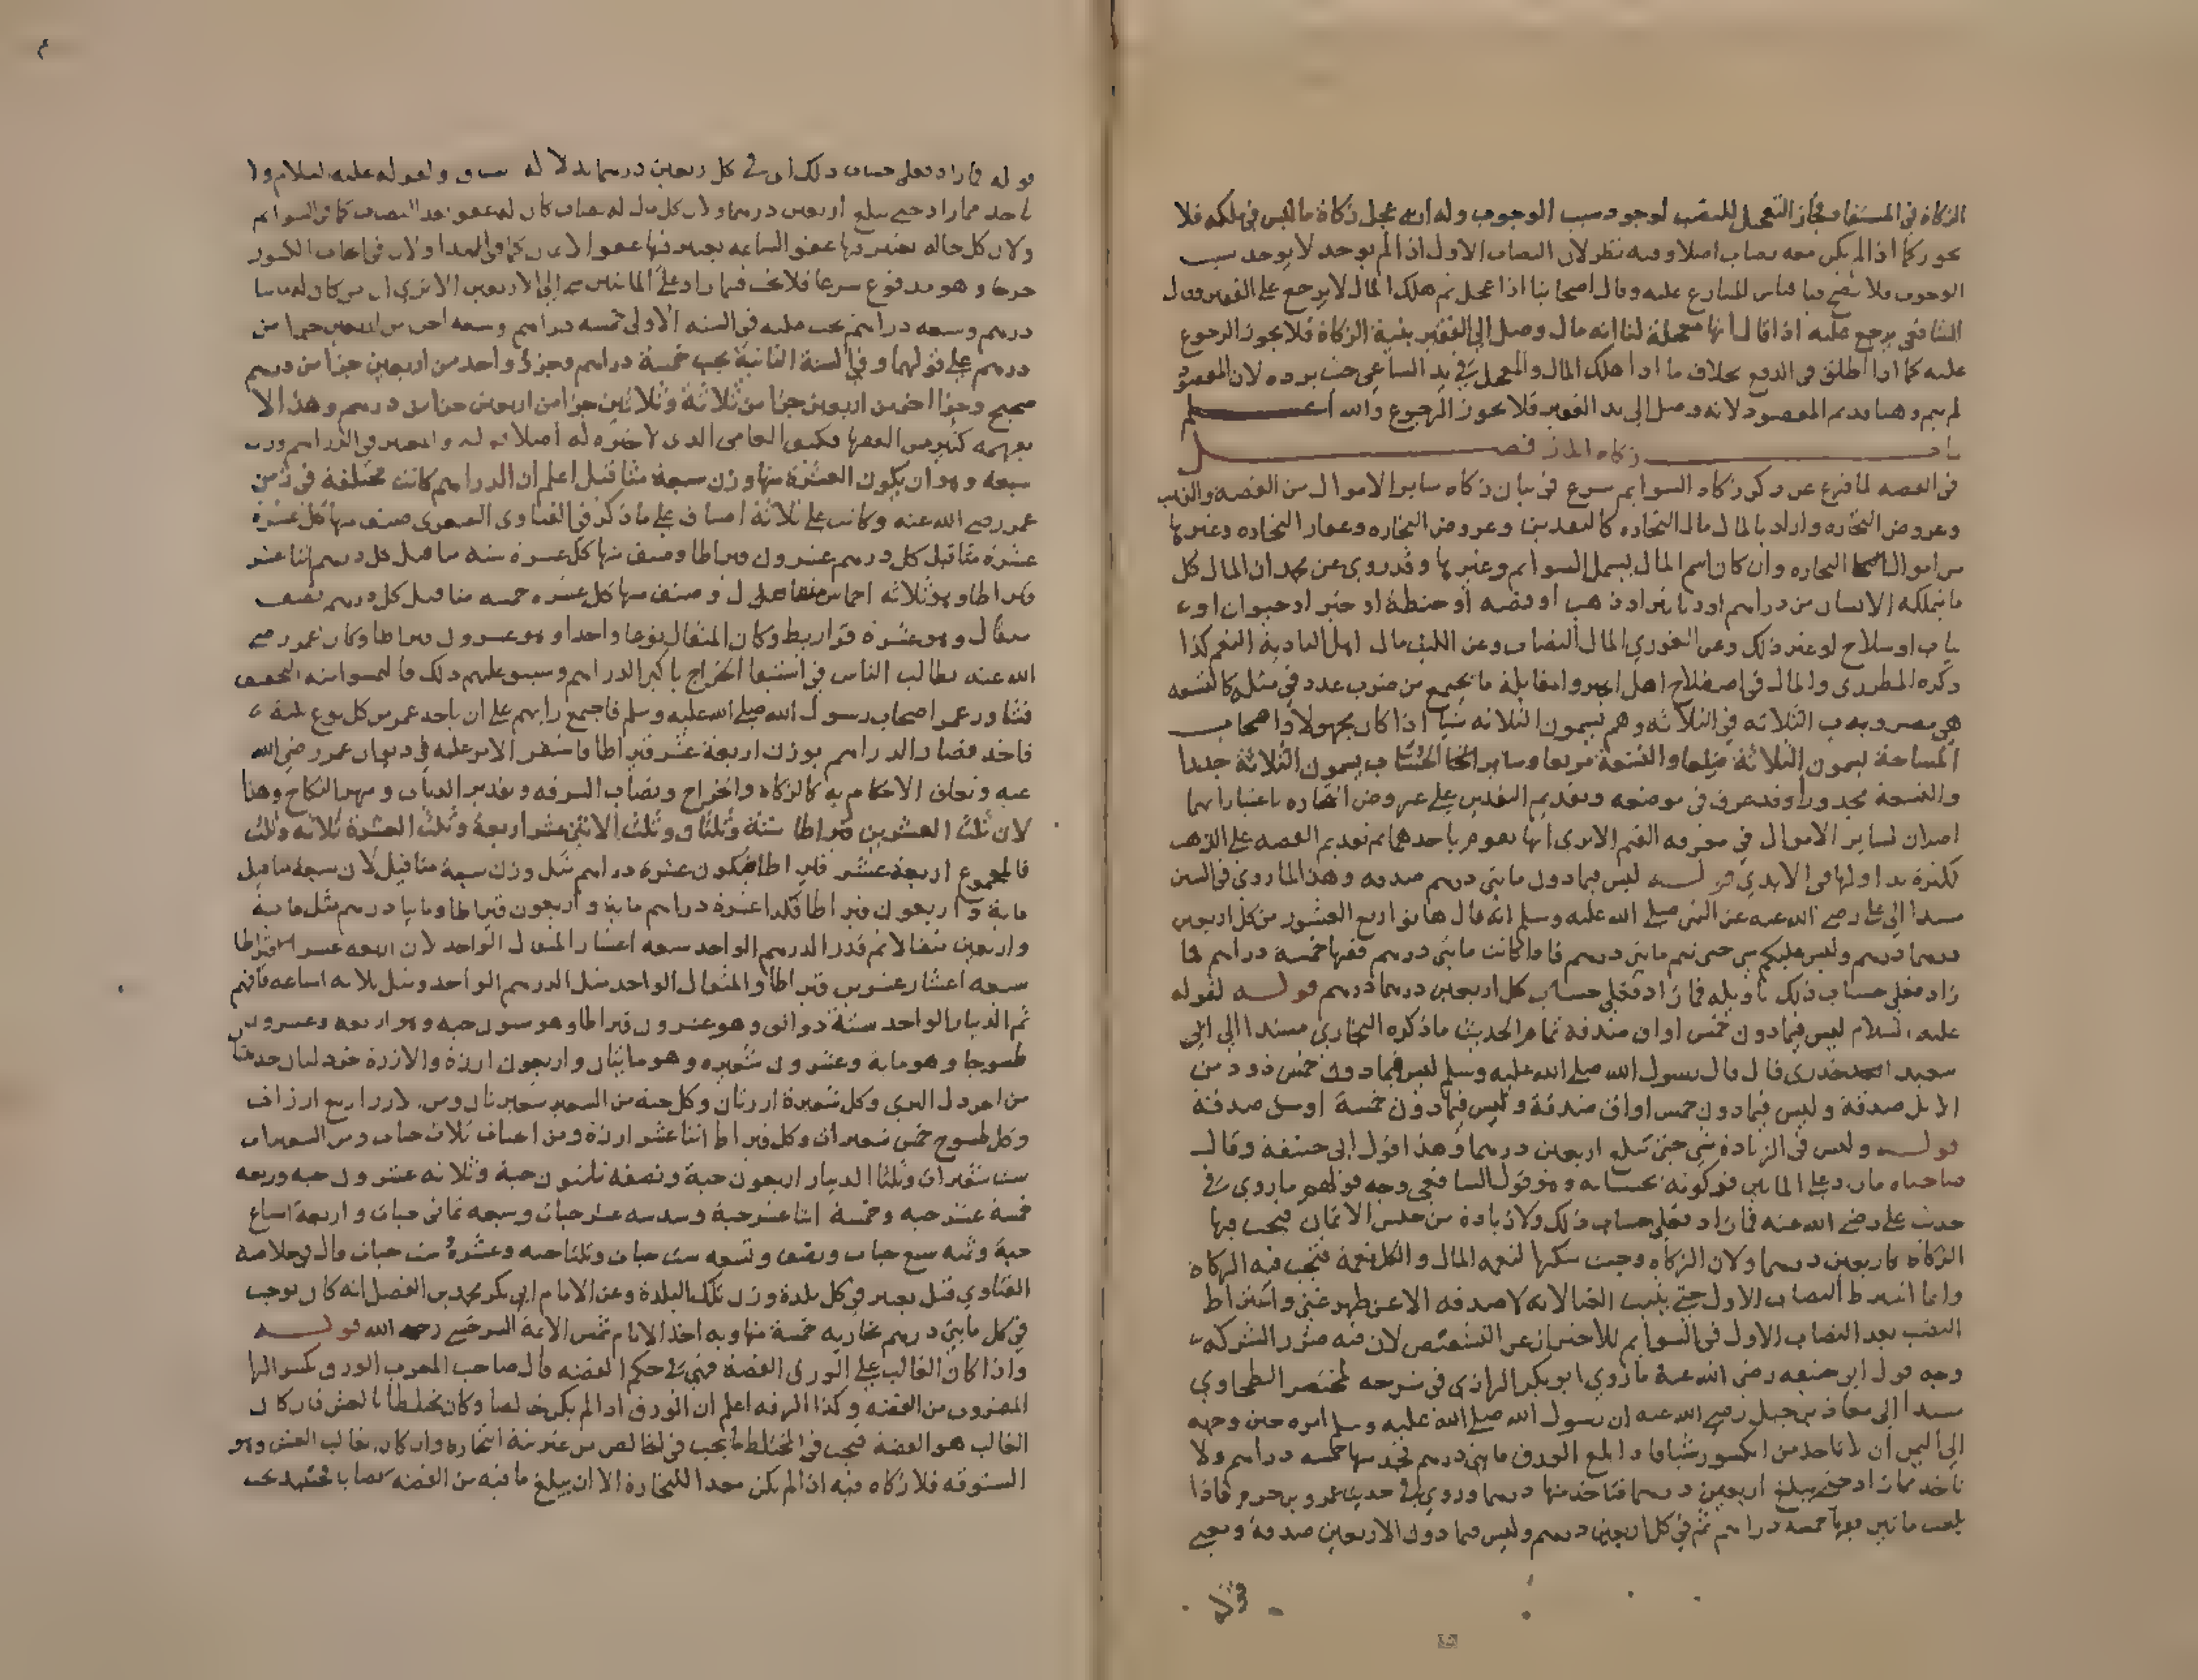 الزكاة في المستفاد فجاز التعجيل للنصب لوجود سبب الوجوب وله انه عجل زكاة ما ليس في ملكه فلا
يجوز كما اذا لم يكن معه نصاب اصلا وفيه نظر لان النصاب الاول اذا لم يوجد لا يوجد سبب
الوجوب فلا يصح وقال اصحابنا اذا عجل ثم هلك المال لا يرجع على الفقير وقال
الشافعي يرجع عليه اذا قال انها معجلة لنا انه مال وصل الى الفقير بنية الزكاة فلا يجوز الرجوع
عليه كما اذا اطلق في الدفع بخلاف ما اذا هلك المال والمعجل في يد الساعي حيث يرده لان المقصود
لم يتم وهنا قد تم المقصود لانه وصل الى يد الفقير فلا يجوز الرجوع والله اعلم
باب زكاه المال فصل
في الفضه لما فرغ عن ذكر زكاه السوايم شرع في بيان زكاه ساير الاموال من الفضة والذهب
وعروض التجاره واراد بالمال مال التجاره كالنقدين وعروض التجاره وعقار التجاره وغيرها
من اموال التجاره وان كان اسم المال يشمل السوايم وغيرها وقد روى عن محمد ان المال كل
ما يتملكه الانسان من دراهم او دنانير او ذهب او فضه او حنطة او خبز او حيوان او
ثياب او سلاح او غير ذلك وعن الغوري المال النصاب وعن الليث مال اهل البادية النعم كذا
ذكره المطرزي والمال في اصطلاح اهل الجبر والمقابلة ما يجتمع من ضرب عدد في مثله كالتسعه
هي مضروبه الثلاثه في الثلاثه وهم يسمون الثلاثه شيئا اذا كان مجهولا واصحاب
المساحة يسمون الثلاثة ضلعا والتسعة مربعا وساير الحساب يسمون الثلاثة جذرا
والتسعة مجذورا وقد عرف في موضعه وتقديم النقدين على عروض التجاره باعتبار انهما
اصلان لساير الاموال في معرفه القيم الا يرى انها تقوم باحدهما ثم تقديم الفضه على الذهب
لكثرة تداولها في الايدي قولـــه ليس فيما دون مايتي درهم صدقه وهذا لما روى في السنن
مسندا الى علي رضي الله عنه عن النبي صلى الله عليه وسلم انه قال هاتوا ربع العشور من كل اربعين
درهما درهم وليس عليكم شي حتى تتم مايتي درهم فاذا كانت مايتي درهم ففيها خمسة دراهم فما
زاد فعلى حساب ذلك تاويله فما زاد فعلى حساب كل اربعين درهما درهم قولـــه لقوله
عليه السلام ليس فيما دون خمس اواق صدقه تمام الحديث ما ذكره البخاري مسندا الى ابي
سعيد الخدرى قال قال رسول الله صلى الله عليه وسلم ليس فيما دون خمس ذود من
الابل صدقة وليس فيما دون خمس اواق صدقة وليس فيما دون خمسة اوسق صدقة
قولـــه وليس في الزيادة شي حتى تبلغ اربعين درهما وهذا قول ابي حنيفه وقال
صاحباه ما زاد على المايتين فزكوته بحسابه وهو قول الشافعي وجه قولهم ما روي في
حديث علي رضي الله عنه فما زاد فعلى حساب ذلك ولان الزيادة من جنس الاثمان فيجب فيها
الزكاه كاربعين درهما ولان الزكاه وجبت شكرا لنعمه المال والكل نعمة فتجب فيه الزكاه
وانما اشترط النصاب الاول حتى يثبت الغنا لانه لا صدقه الا عن ظهر غنى واشتراط
النصب بعد النصاب الاول في السوايم للاحتراز عن التشقيص لان فيه ضرر الشركه
وجه قول ابي حنيفه رضي الله عنه ما روي ابو بكر الرازى في شرحه لمختصر الطحاوي
مسندا الى معاذ بن جبل رضي الله عنه ان رسول الله صلى الله عليه وسلم امره حين وجهه
الى اليمن ان لا ياخذ من الكسور شيا فاذا بلغ الورق مايتي درهم فخذ منها خمسه دراهم ولا
تاخذ مما زاد حتى يبلغ اربعين درهما فتاخذ منها درهما وروي في حديث عمرو بن حزم فاذا
بلغت مايتين ففيها خمسه دراهم ثم في كل اربعين درهم وليس فيما دون الاربعين صدقة ومعنى
قوله
قوله فما زاد فعلى حساب ذلك اي في كل اربعين درهما بدلالة ولقوله عليه السلام ولا
تاخذ مما زاد حتى يبلغ اربعين درهما ولان كل مال له نصاب كان له عفو بعد النصاب كما في السوايم
درهم وسبعه دراهم يجب عليه في السنه الاولى خمسه دراهم وسبعه اجزا من اربعين جزا من
درهم على قولهما وفي السنة الثانية يجب خمسة دراهم وجزؤ واحد من اربعين جزا من درهم
صحيح وجزا اخر من اربعين جزا من ثلاثة وثلاثين جزا من اربعين جزا من درهم وهذا لا
يفهمه كثير من الفقها فكيف العامي الذى لا خبره له اصلا قوله والمعتبر في الدراهم وزن
سبعه وهو ان يكون العشرة منها وزن سبعة مثاقيل اعلم ان الدراهم كانت مختلفة في زمن
عمر رضي الله عنه وكانت على ثلاثة اصناف على ما ذكر في الفتاوى الصغرى صنف منها كل عشرة
عشرة مثاقيل كل درهم عشرون قيراطا وصنف منها كل عشرة ستة مثاقيل كل درهم اثنا عشر
قيراطا وهو ثلاثه اخماس مثقال وصنف منها كل عشره خمسه مثاقيل كل درهم نصف
مثقال وهو عشرة قواريط وكان المثقال نوعا واحدا وهو عشرون قيراطا وكان عمر رضي
الله عنه يطالب الناس في استيفا الخراج باكبر الدراهم ويشق عليهم ذلك فالتمسوا منه التخفيف
فشاور عمر اصحاب رسول الله صلى الله عليه وسلم فاجتمع رايهم على ان ياخذ عمر من كل نوع ثلثه
فاخذ فصار الدراهم بوزن اربعة عشر قيراطا فاستقر الامر عليه في ديوان عمر رضي الله
عنه وتعلق الاحكام به كالزكاه والخراج ونصاب السرقه وتقدير الديات ومهر النكاح وهذا
لان ثلث العشرين قيراطا ستة وثلثان وثلث الاثني عشر اربعة وثلث العشرة ثلاثه وثلث
فالمجموع اربعة عشر قيراطا فيكون عشرة دراهم مثل وزن سبعة مثاقيل لان سبعة مثاقيل
ماية واربعون قيراطا فكذا عشرة دراهم ماية واربعون قيراطا ومايتا درهم مثل ماية
واربعين مثقالا ثم قدر الدرهم الواحد سبعه اعشار المثقال الواحد لان اربعه عشر قيراطا
سبعه اعشار عشرين قيراطا والمثقال الواحد مثل الدرهم الواحد ومثل ثلاثه اسباعه فافهم
ثم الدينار الواحد ستة دوانق وهو عشرون قيراطا وهو ستون حبه وهو اربعه وعشرون
طسوجا وهو ماية وعشرون شعيره وهو مايتان واربعون ارزة والارزة خردلتان
وكل طسوج خمس شعيرات وكل قيراط اثنا عشر ارزة ومن اصناف ثلاث حبات ومن الشعيرات
ست شعيرات وثلثا الدينار اربعون حبة ونصفه ثلثون حبة وثلاثه عشرون حبه وربعه
خمسة عشر حبه وخمسة اثنا عشر حبة وسدسه عشر حبات وسبعه ثماني حبات واربعة اسباع
حبة وثمنه سبع حبات ونصف وتسعه ست حبات وثلثا حبه وعشرة ست حبات قال في خلاصه
الفتاوي قيل يعتبر في كل بلدة وزن تلك البلدة وعن الامام ابي بكر محمد بن الفضل انه كان يوجب
في كل مايتي درهم بخاريه خمسة منها وبه اخذ الامام شمس الايمة السرخسي رحمه الله قولـــه
واذا كان الغالب على الورق الفضة فهي في حكم الفضة قال صاحب المغرب الورق بكسر الرا
المضروب من الفضه وكذا الرقه اعلم ان الورق اذا لم يكن خالصا وكان مختلطا بالغش فان كان
الغالب هو الفضة فيجب في المختلط ما يجب في الخالص من غير نية التجاره وان كان الغالب الغش وهو
الستوقه فلا زكاه فيه اذا لم يكن معدا للتجارة الا ان يبلغ ما فيه من الفضه نصابا فحينيذ يجب